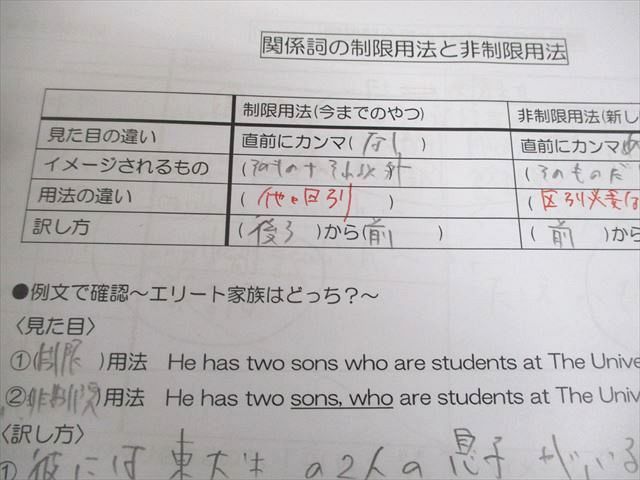 関係詞の制限用法と非制限用法
制限用法(今までのやつ) 非制限用法(新し
見た目の違い 直前にカンマ( なし ) 直前にカンマ( あ
イメージされるもの (そのもの+それ以外 (そのものだ
用法の違い ( 他と区別 ) (区別必要な
訳し方 ( 後ろ )から( 前 ) ( 前 )から
●例文で確認～エリート家族はどっち？～
〈見た目〉
①(制限 )用法 He has two sons who are students at The Unive
②(非制限)用法 He has two sons, who are students at The Univ
〈訳し方〉
① 彼には 東大生 の2人の 息子 がいる